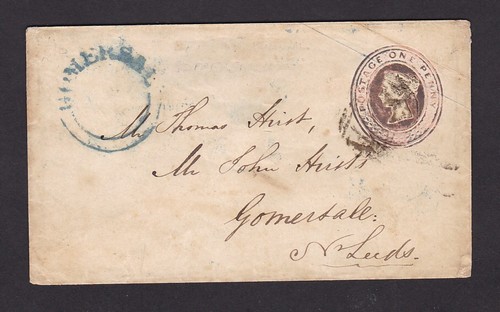 GOMERSAL
POSTAGE ONE PENNY
Mr Thomas Hirst,
Mr John Hirst's
Gomersall:
Nr Leeds.